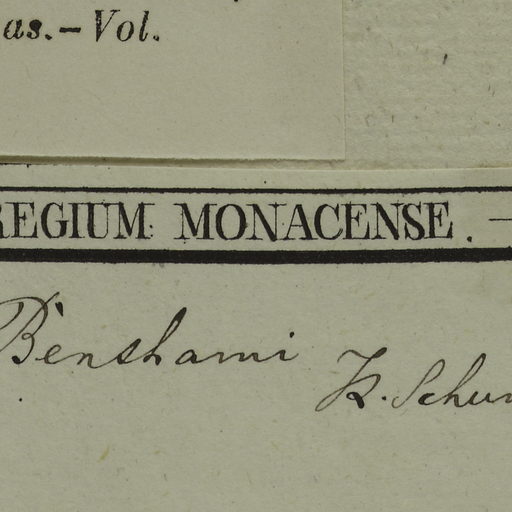 as.—Vol.
REGIUM MONACENSE. —
Benthami K. Schum